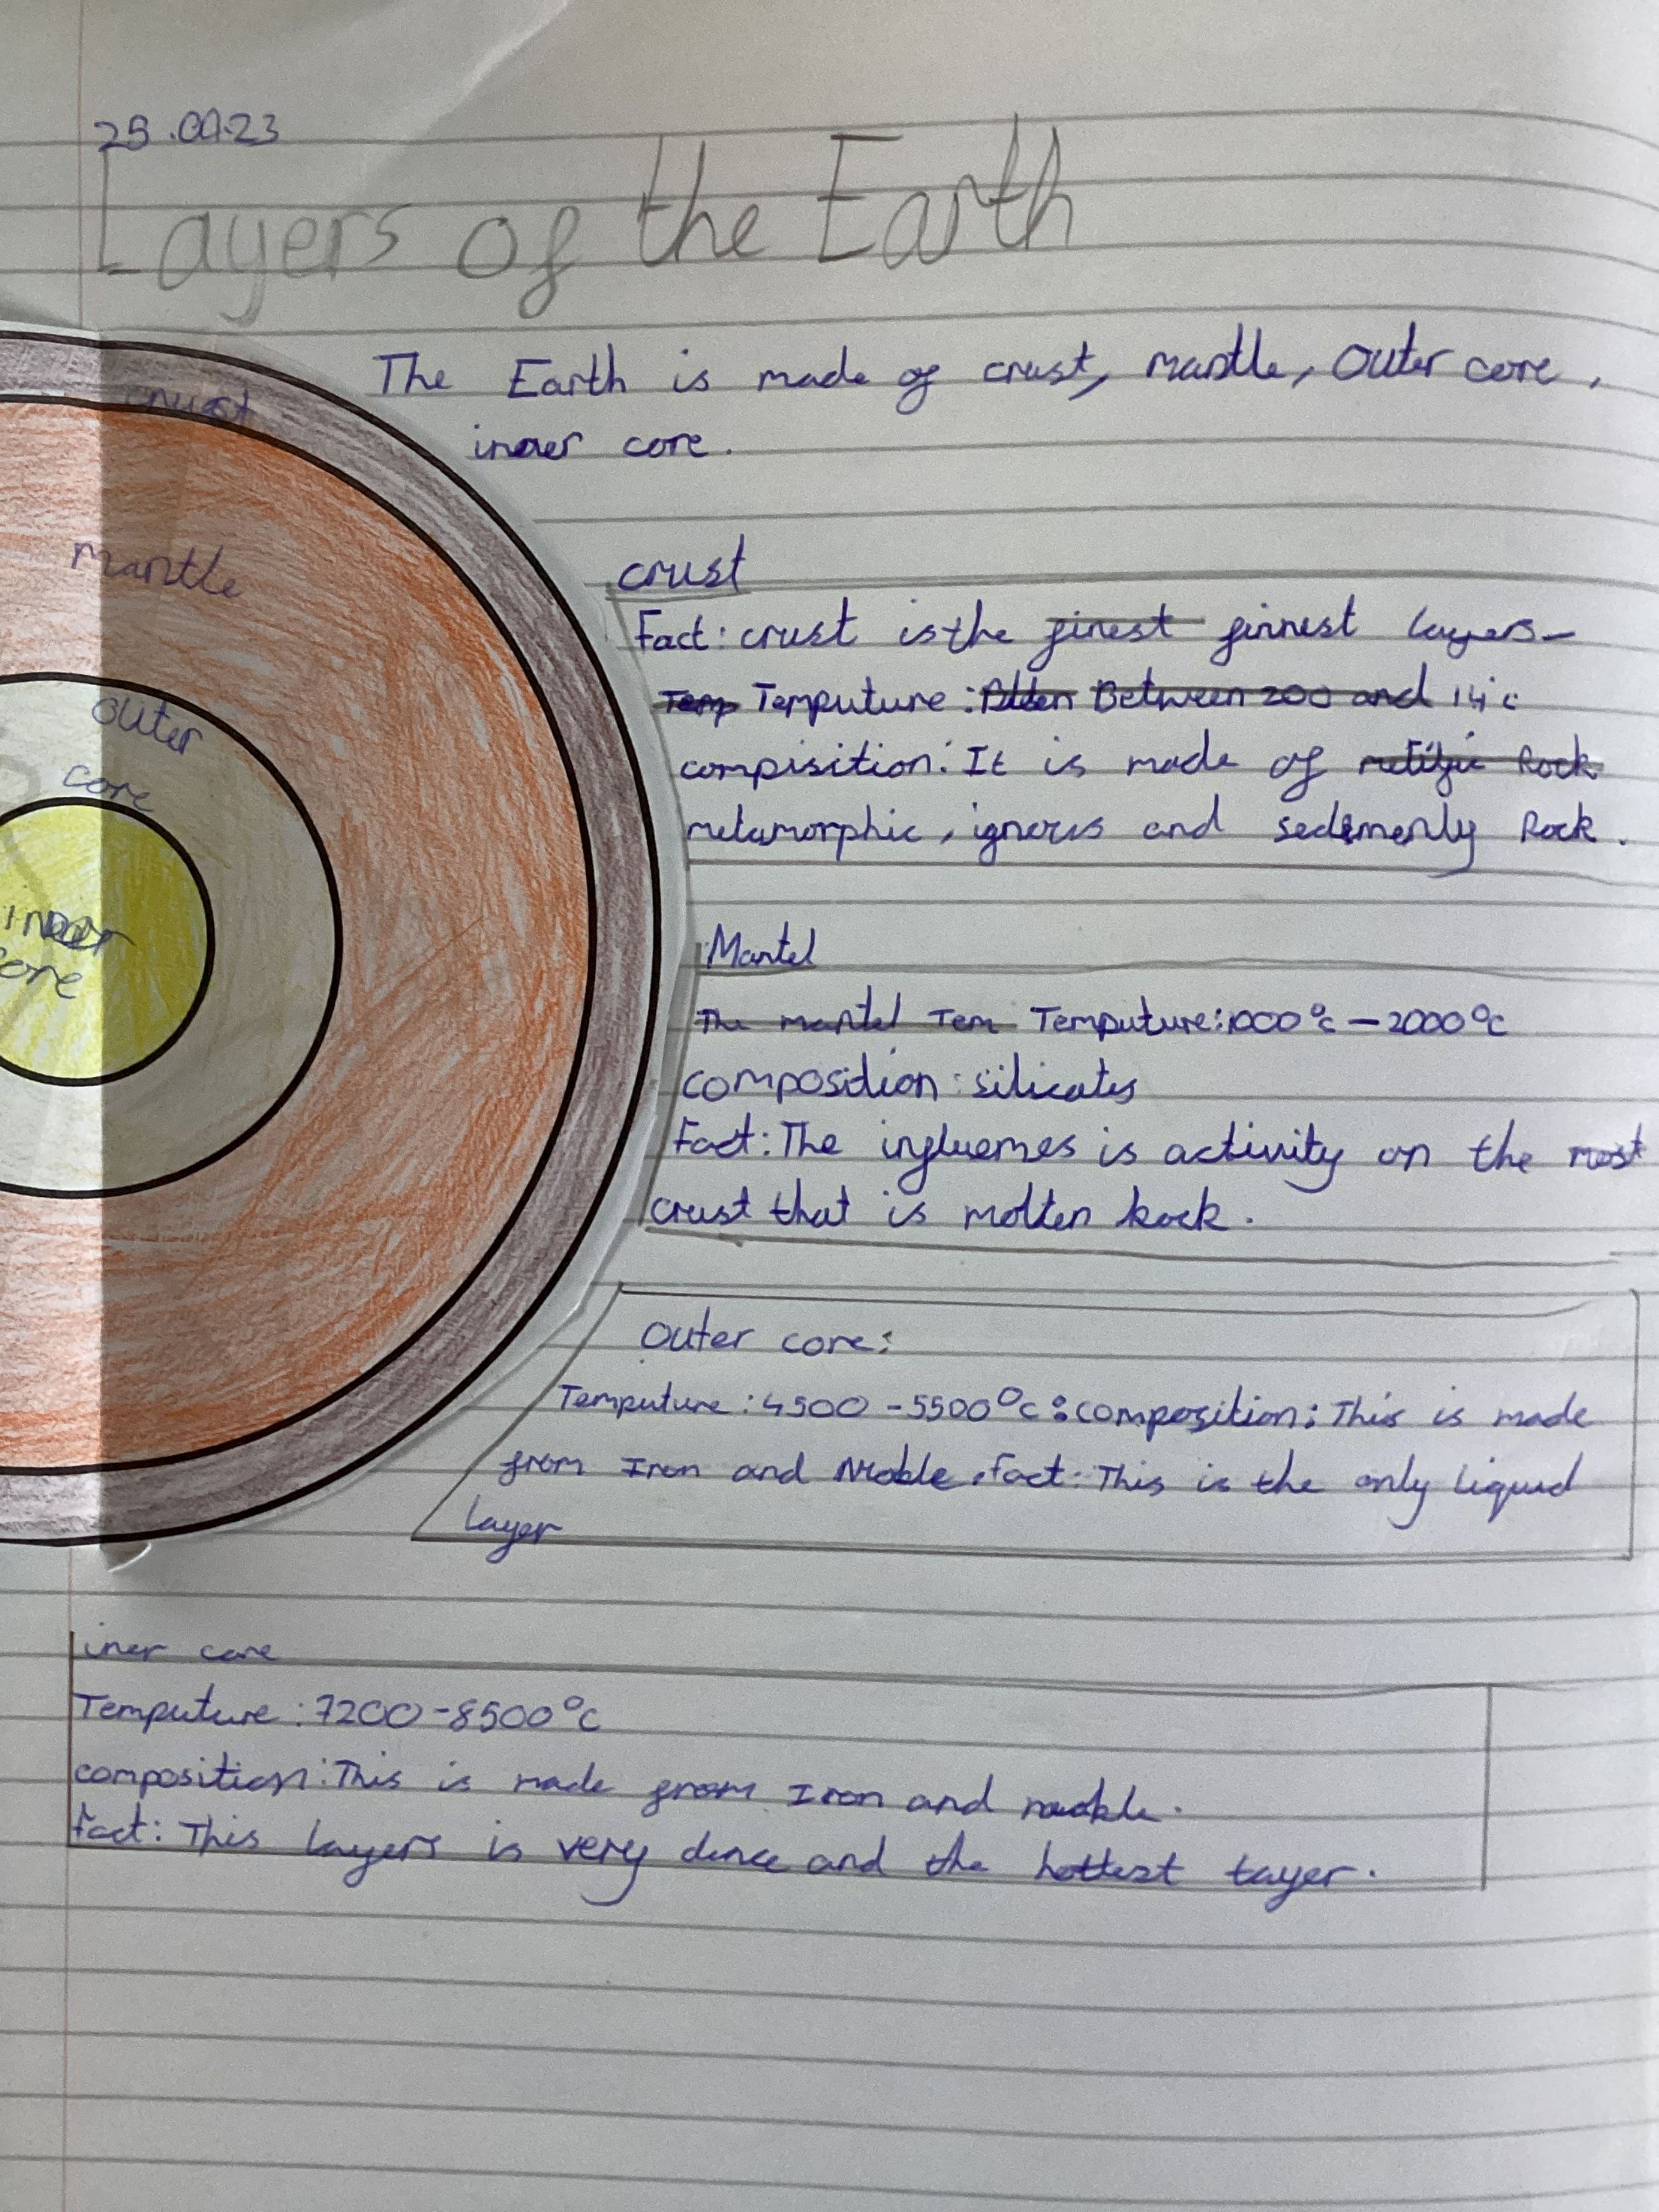 25.09.23
Layers of the Earth
The Earth is made of crust, mantle, outer core,
inner core.
crust
mantle
outer
core
inner
core
crust
Fact: crust is the finest finnest layers
Temp Temputure: Between 200 and 14°c
compisition: It is made of Rock
metamorphic, ignous and sedimenly Rock.
Mantel
The mantel Tem Temputure: 1000°c - 2000°c
composition: silicates
Fact: The influemes is activity on the most
crust that is molten kock.
Outer core:
Temputure: 4500 - 5500°c: composition: This is made
from Iron and Nickle. Fact: This is the only liquid
layer
iner core
Temputure: 7200-8500°c
composition: This is made from Iron and
fact: This layers is very dence and the hottest tayer.